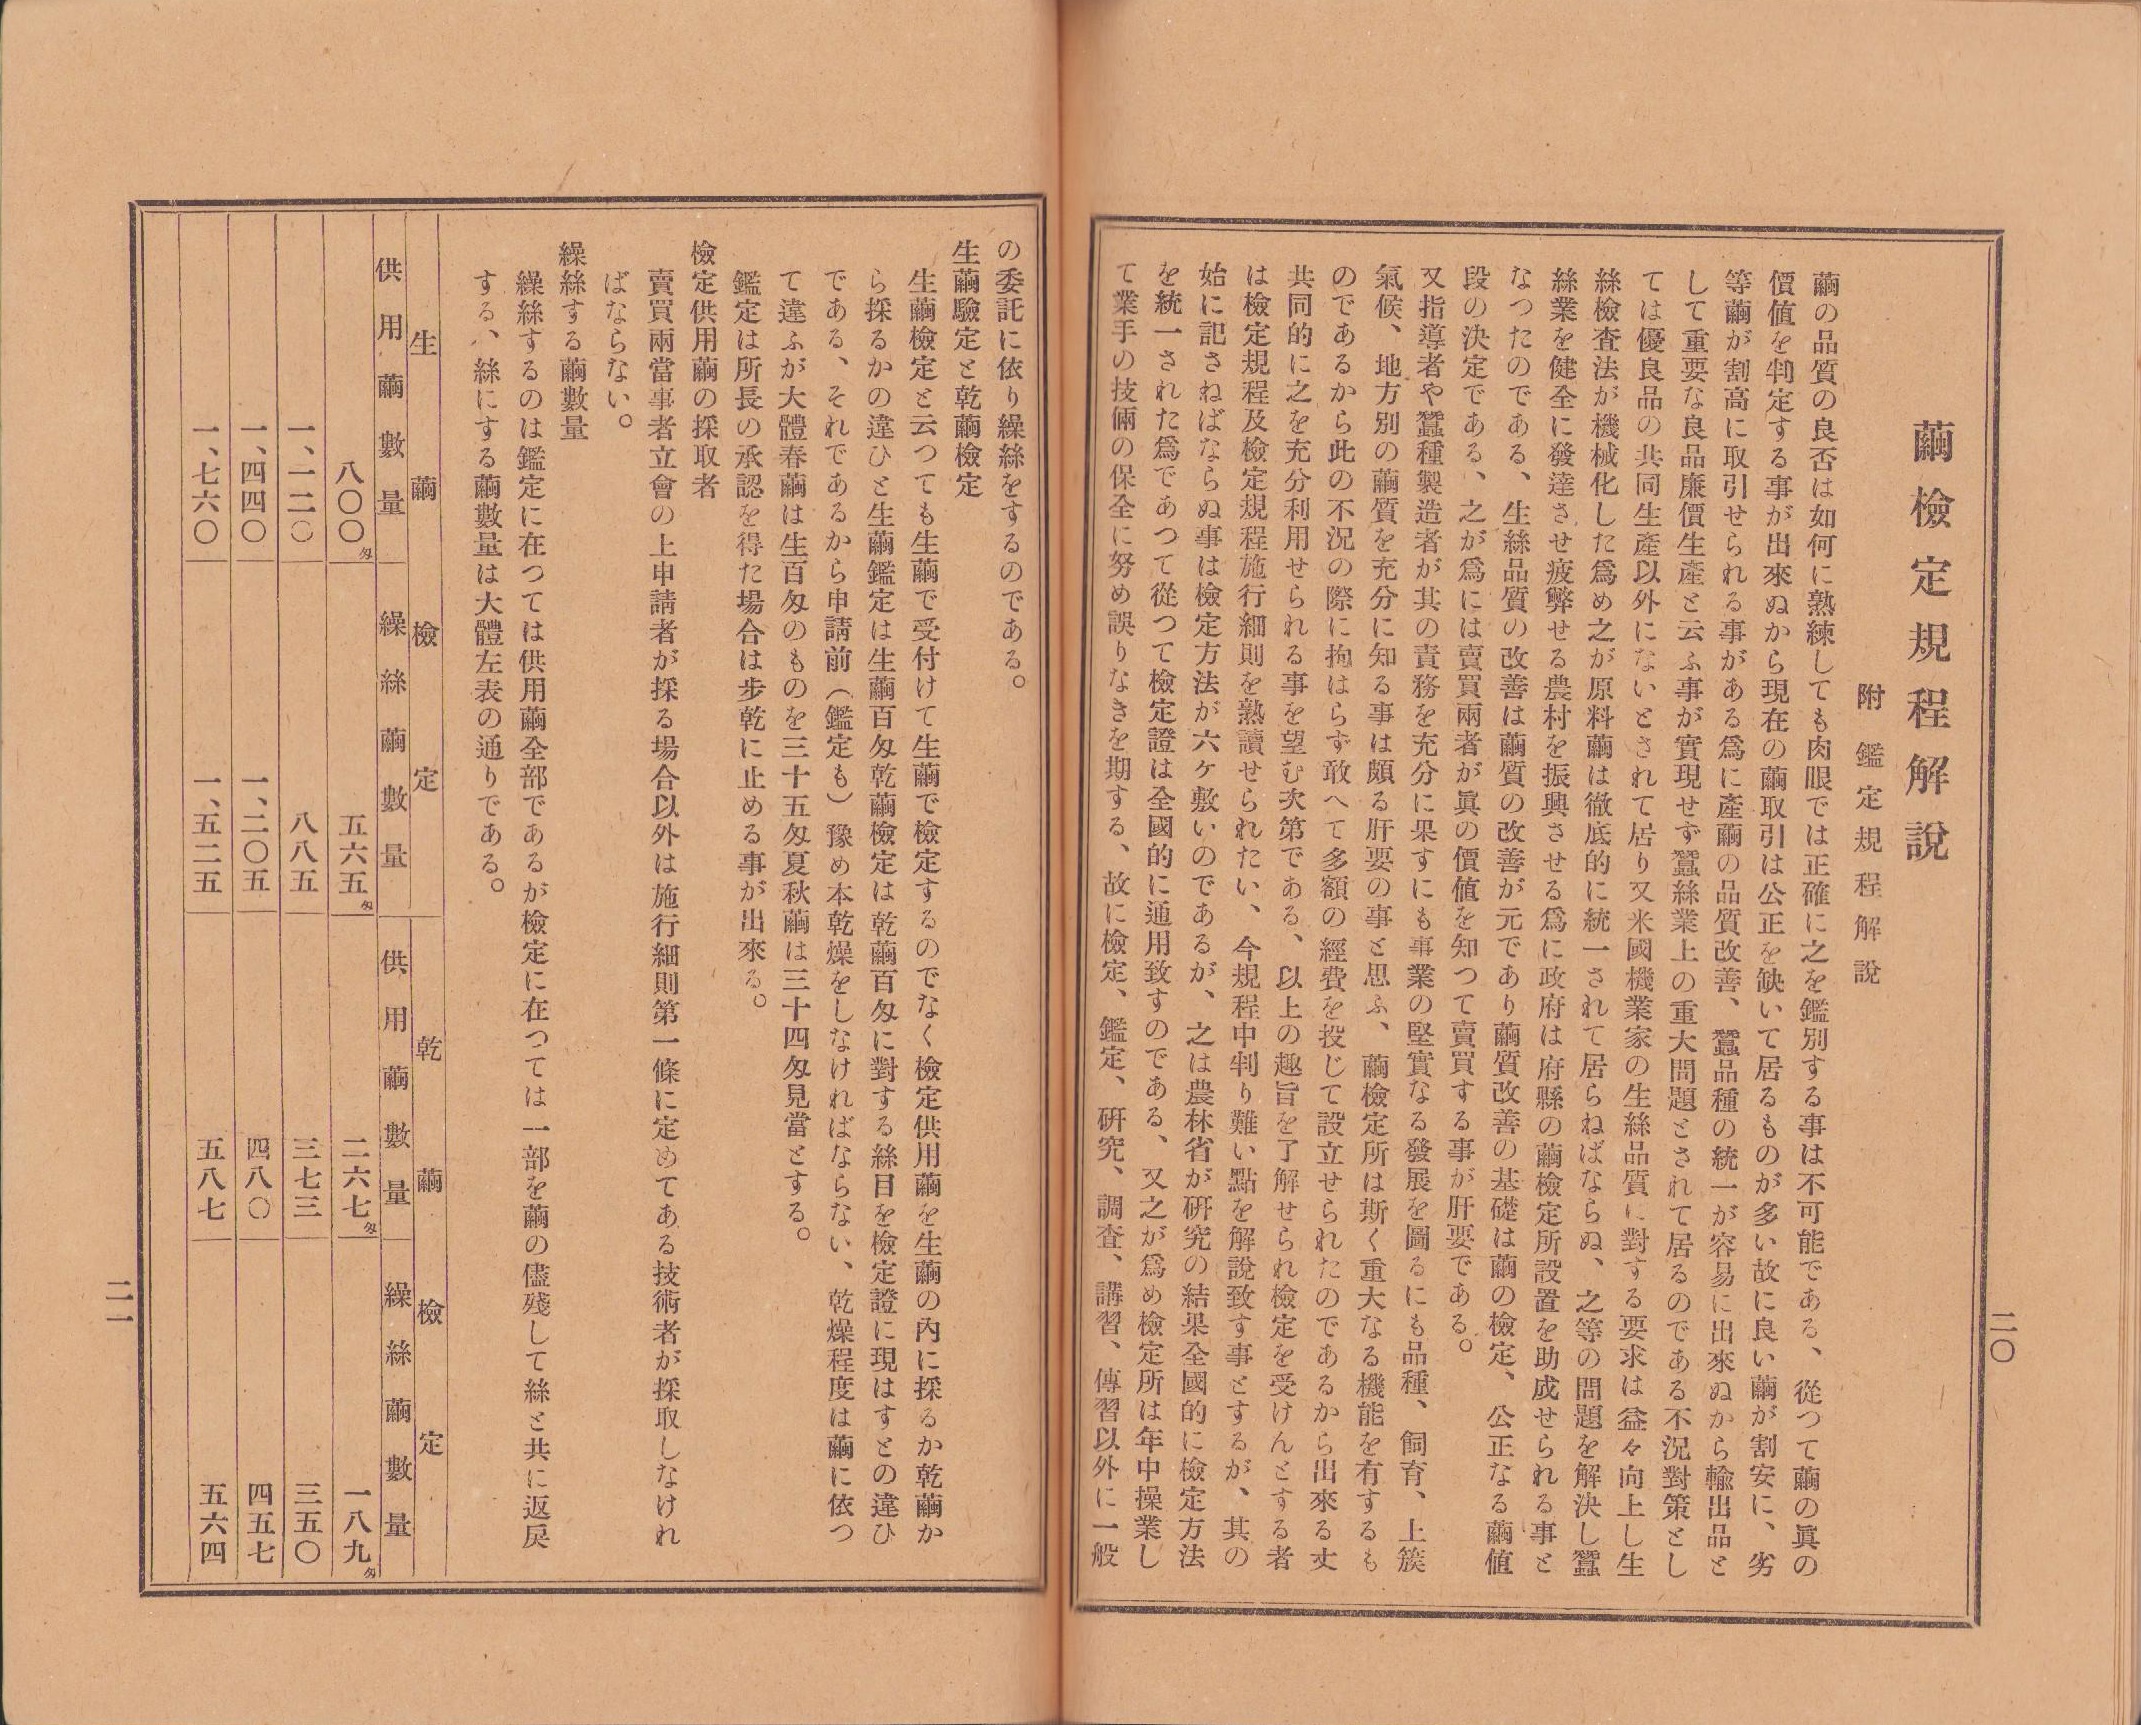 繭檢定規程解說
附　鑑定規程解說
繭の品質の良否は如何に熟練しても肉眼では正確に之を鑑別する事は不可能である、從つて繭の眞の
價値を判定する事が出來ぬから現在の繭取引は公正を缺いて居るものが多い故に良い繭が割安に、劣
等繭が割高に取引せられる事がある爲に產繭の品質改善、蠶品種の統一が容易に出來ぬから輸出品と
して重要な良品廉價生產と云ふ事が實現せず蠶絲業上の重大問題とされて居るのである不況對策とし
ては優良品の共同生產以外にないとされて居り又米國機業家の生絲品質に對する要求は益々向上し生
絲檢査法が機械化した爲め之が原料繭は徹底的に統一されて居らねばならぬ、之等の問題を解決し蠶
絲業を健全に發達させ疲弊せる農村を振興させる爲に政府は府縣の繭檢定所設置を助成せられる事と
なつたのである、生絲品質の改善は繭質の改善が元であり繭質改善の基礎は繭の檢定、公正なる繭値
段の決定である、之が爲には賣買兩者が眞の價値を知つて賣買する事が肝要である。
又指導者や蠶種製造者が其の責務を充分に果すにも事業の堅實なる發展を圖るにも品種、飼育、上簇
氣候、地方別の繭質を充分に知る事は頗る肝要の事と思ふ、繭檢定所は斯く重大なる機能を有するも
のであるから此の不況の際に拘はらず敢へて多額の經費を投じて設立せられたのであるから出來る丈
共同的に之を充分利用せられる事を望む次第である、以上の趣旨を了解せられ檢定を受けんとする者
は檢定規程及檢定規程施行細則を熟讀せられたい、今規程中判り難い點を解說致す事とするが、其の
始に記さねばならぬ事は檢定方法が六ヶ敷いのであるが、之は農林省が硏究の結果全國的に檢定方法
を統一された爲であつて從つて檢定證は全國的に通用致すのである、又之が爲め檢定所は年中操業し
て業手の技倆の保全に努め誤りなきを期する、故に檢定、鑑定、硏究、調査、講習、傳習以外に一般
二〇
の委託に依り繰絲をするのである。
生繭驗定と乾繭檢定
生繭檢定と云つても生繭で受付けて生繭で檢定するのでなく檢定供用繭を生繭の內に採るか乾繭か
ら採るかの違ひと生繭鑑定は生繭百匁乾繭檢定は乾繭百匁に對する絲目を檢定證に現はすとの違ひ
である、それであるから申請前（鑑定も）豫め本乾燥をしなければならない、乾燥程度は繭に依つ
て違ふが大體春繭は生百匁のものを三十五匁夏秋繭は三十四匁見當とする。
鑑定は所長の承認を得た場合は步乾に止める事が出來る。
檢定供用繭の採取者
賣買兩當事者立會の上申請者が採る場合以外は施行細則第一條に定めてある技術者が採取しなけれ
ばならない。
繰絲する繭數量
繰絲するのは鑑定に在つては供用繭全部であるが檢定に在つては一部を繭の儘殘して絲と共に返戾
する、絲にする繭數量は大體左表の通りである。
生繭檢定　乾繭檢定
供用繭數量　繰絲繭數量　供用繭數量　繰絲繭數量
八〇〇匁　五六五匁　二六七匁　一八九匁
一、一二〇　八八五　三七三　三五〇
一、四四〇　一、二〇五　四八〇　四五七
一、七六〇　一、五二五　五八七　五六四
二一